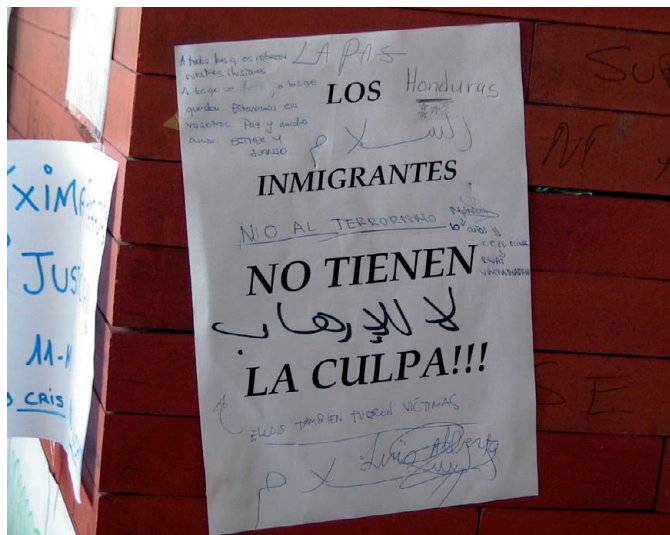 A todos los q. os robaron
vuestras ilusiones
A los que se, a los que
quedan. Estaremos con
vosotros. Paz y mucho
amor. ESTHER Y
LA PAS
LOS
Honduras
سلام
INMIGRANTES
NO AL TERRORISMO
NO TIENEN
لا للإرهاب
LA CULPA!!!
ELLOS TAMBIEN FUERON VÍCTIMAS
Luis Alberto
سلام
XIMA
JUS
11-M
CRIS
SE